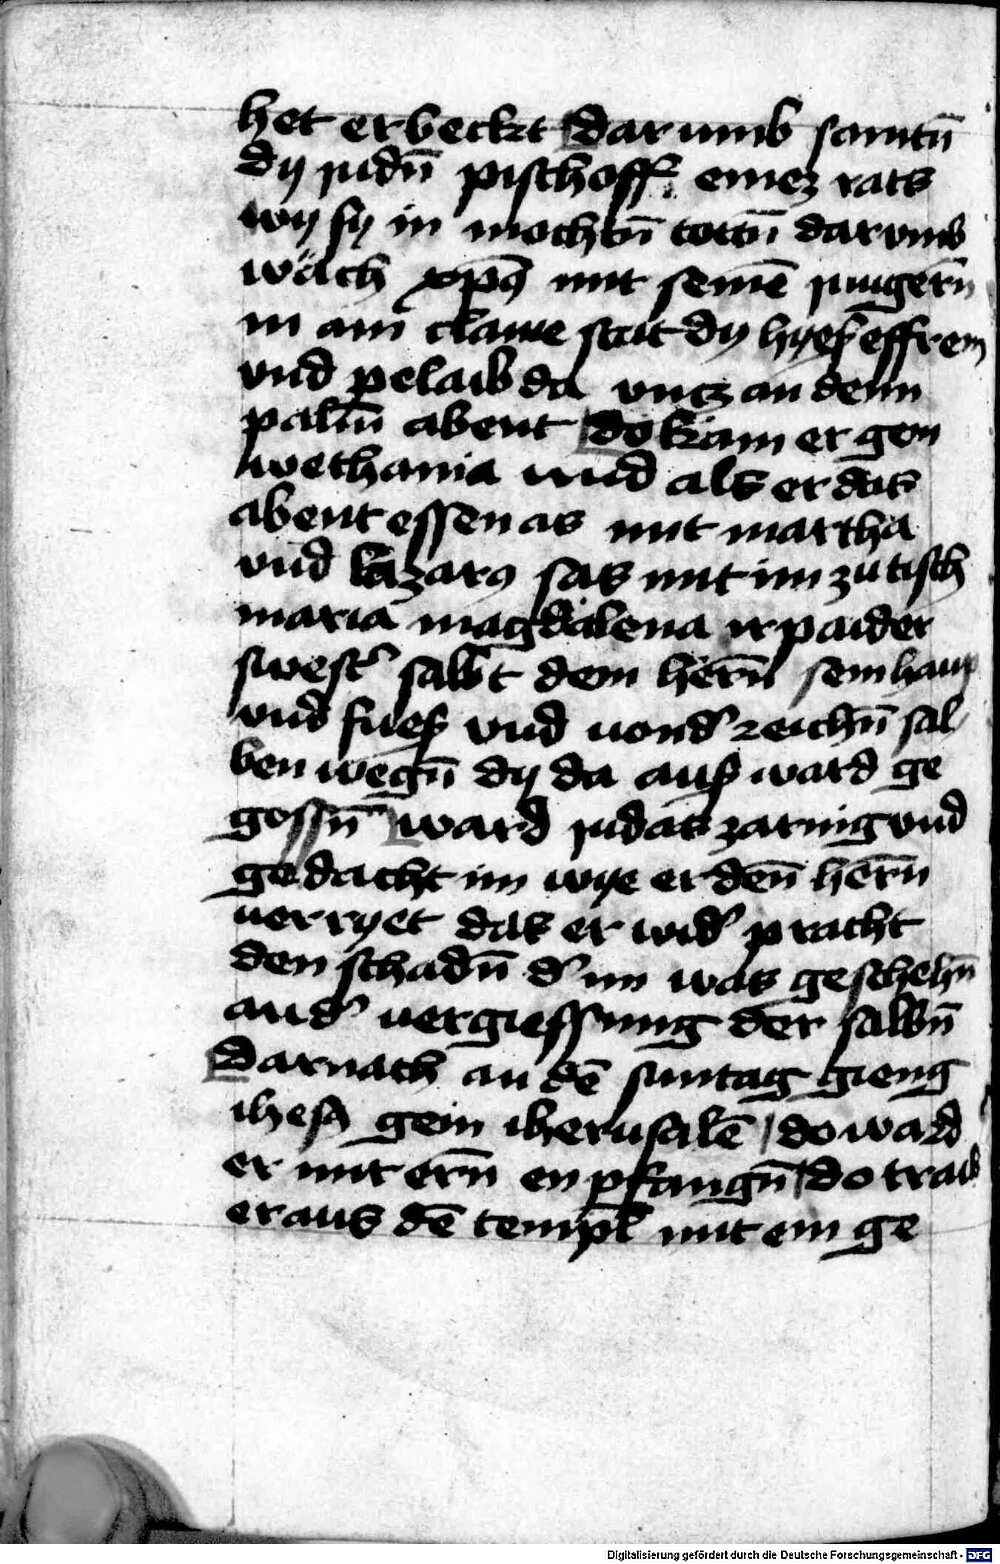 het erbeckt darumb samtn̄
dij judn̄ pischoff eines rats
wij sy in mochtn̄ tottn̄ darumb
wäch xp̄s mit seinē jungern̄
in ain claine stat dij hyes effrem
vnd pelaib da vntz an denn
palm̄ abent do kam er gen
wethania vnd als er das
abent essen as mit martha
vnd lazarus sas mit im zu tisch
maria magdalena ir paider
swest' salbt dem hern̄ sein haup
vnd fues vnd von d' reichn̄ sal
ben wegn̄ dij da aus ward ge
gossn̄ ward judas zarnig vnd
gedacht im wye er denn̄ hern̄
verryet das er wid' pracht
den schadn̄ d' im was geschehn̄
an d' vergiessung der salbn̄
Darnach an dē suntag gieng
ihesus gein iherusalē / do ward
er mit ern̄ enpfangn̄ do traib
er aus dē templ mit ein ge
Digitalisierung gefördert durch die Deutsche Forschungsgemeinschaft - DFG